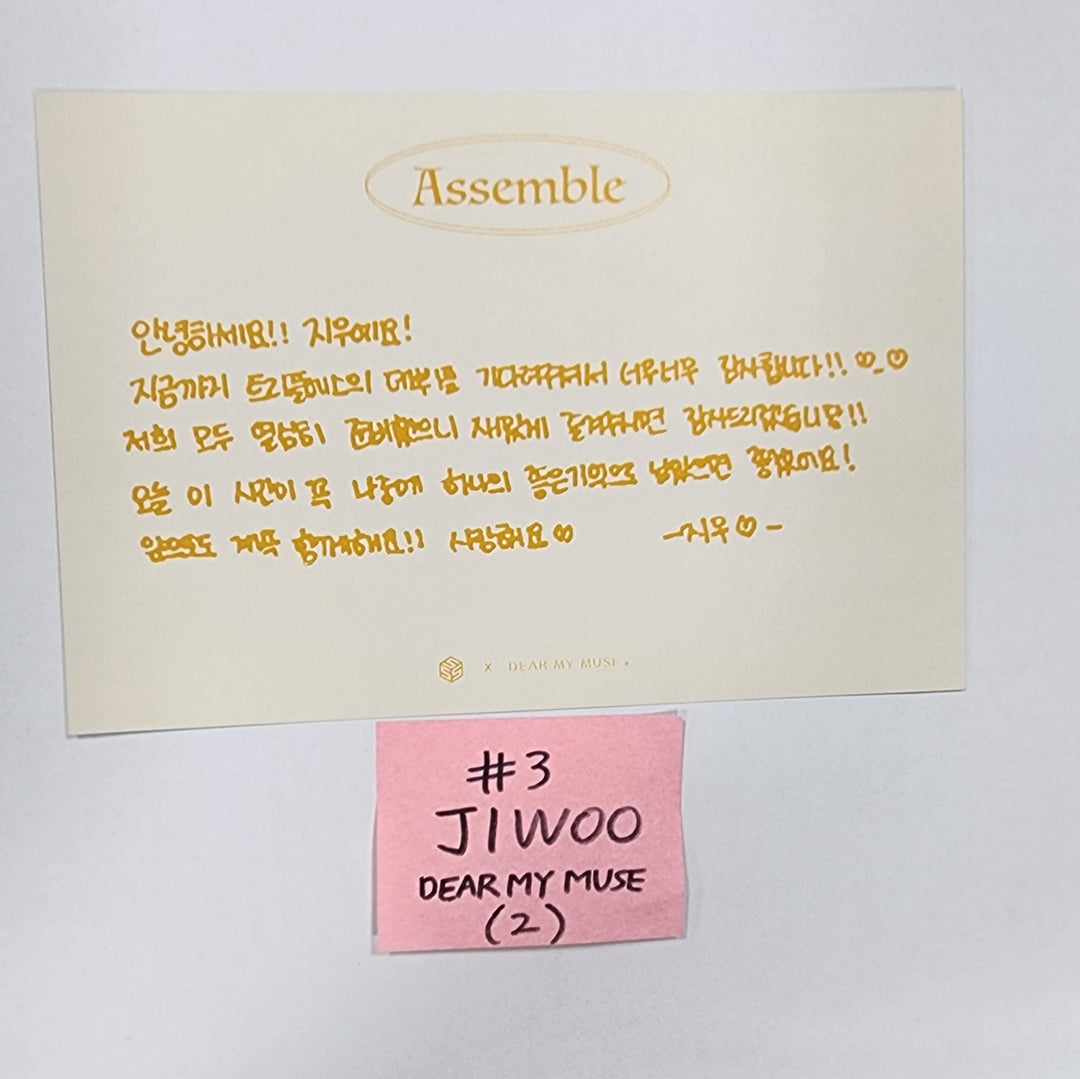 Assemble
안녕하세요!! 지우예요!
지금까지 트리플에스의 데뷔를 기다려주셔서 너무너무 감사합니다!! ♡_♡
저희 모두 열심히 준비했으니 재밌게 즐겨주시면 감사드리겠습니당!!
오늘 이 시간이 꼭 나중에 하나의 좋은기억으로 남았으면 좋겠어요!
앞으로도 계속 함께해요!! 사랑해요♡ -지우♡-
SSS x DEAR MY MUSE.
#3
JIWOO
DEAR MY MUSE
(2)